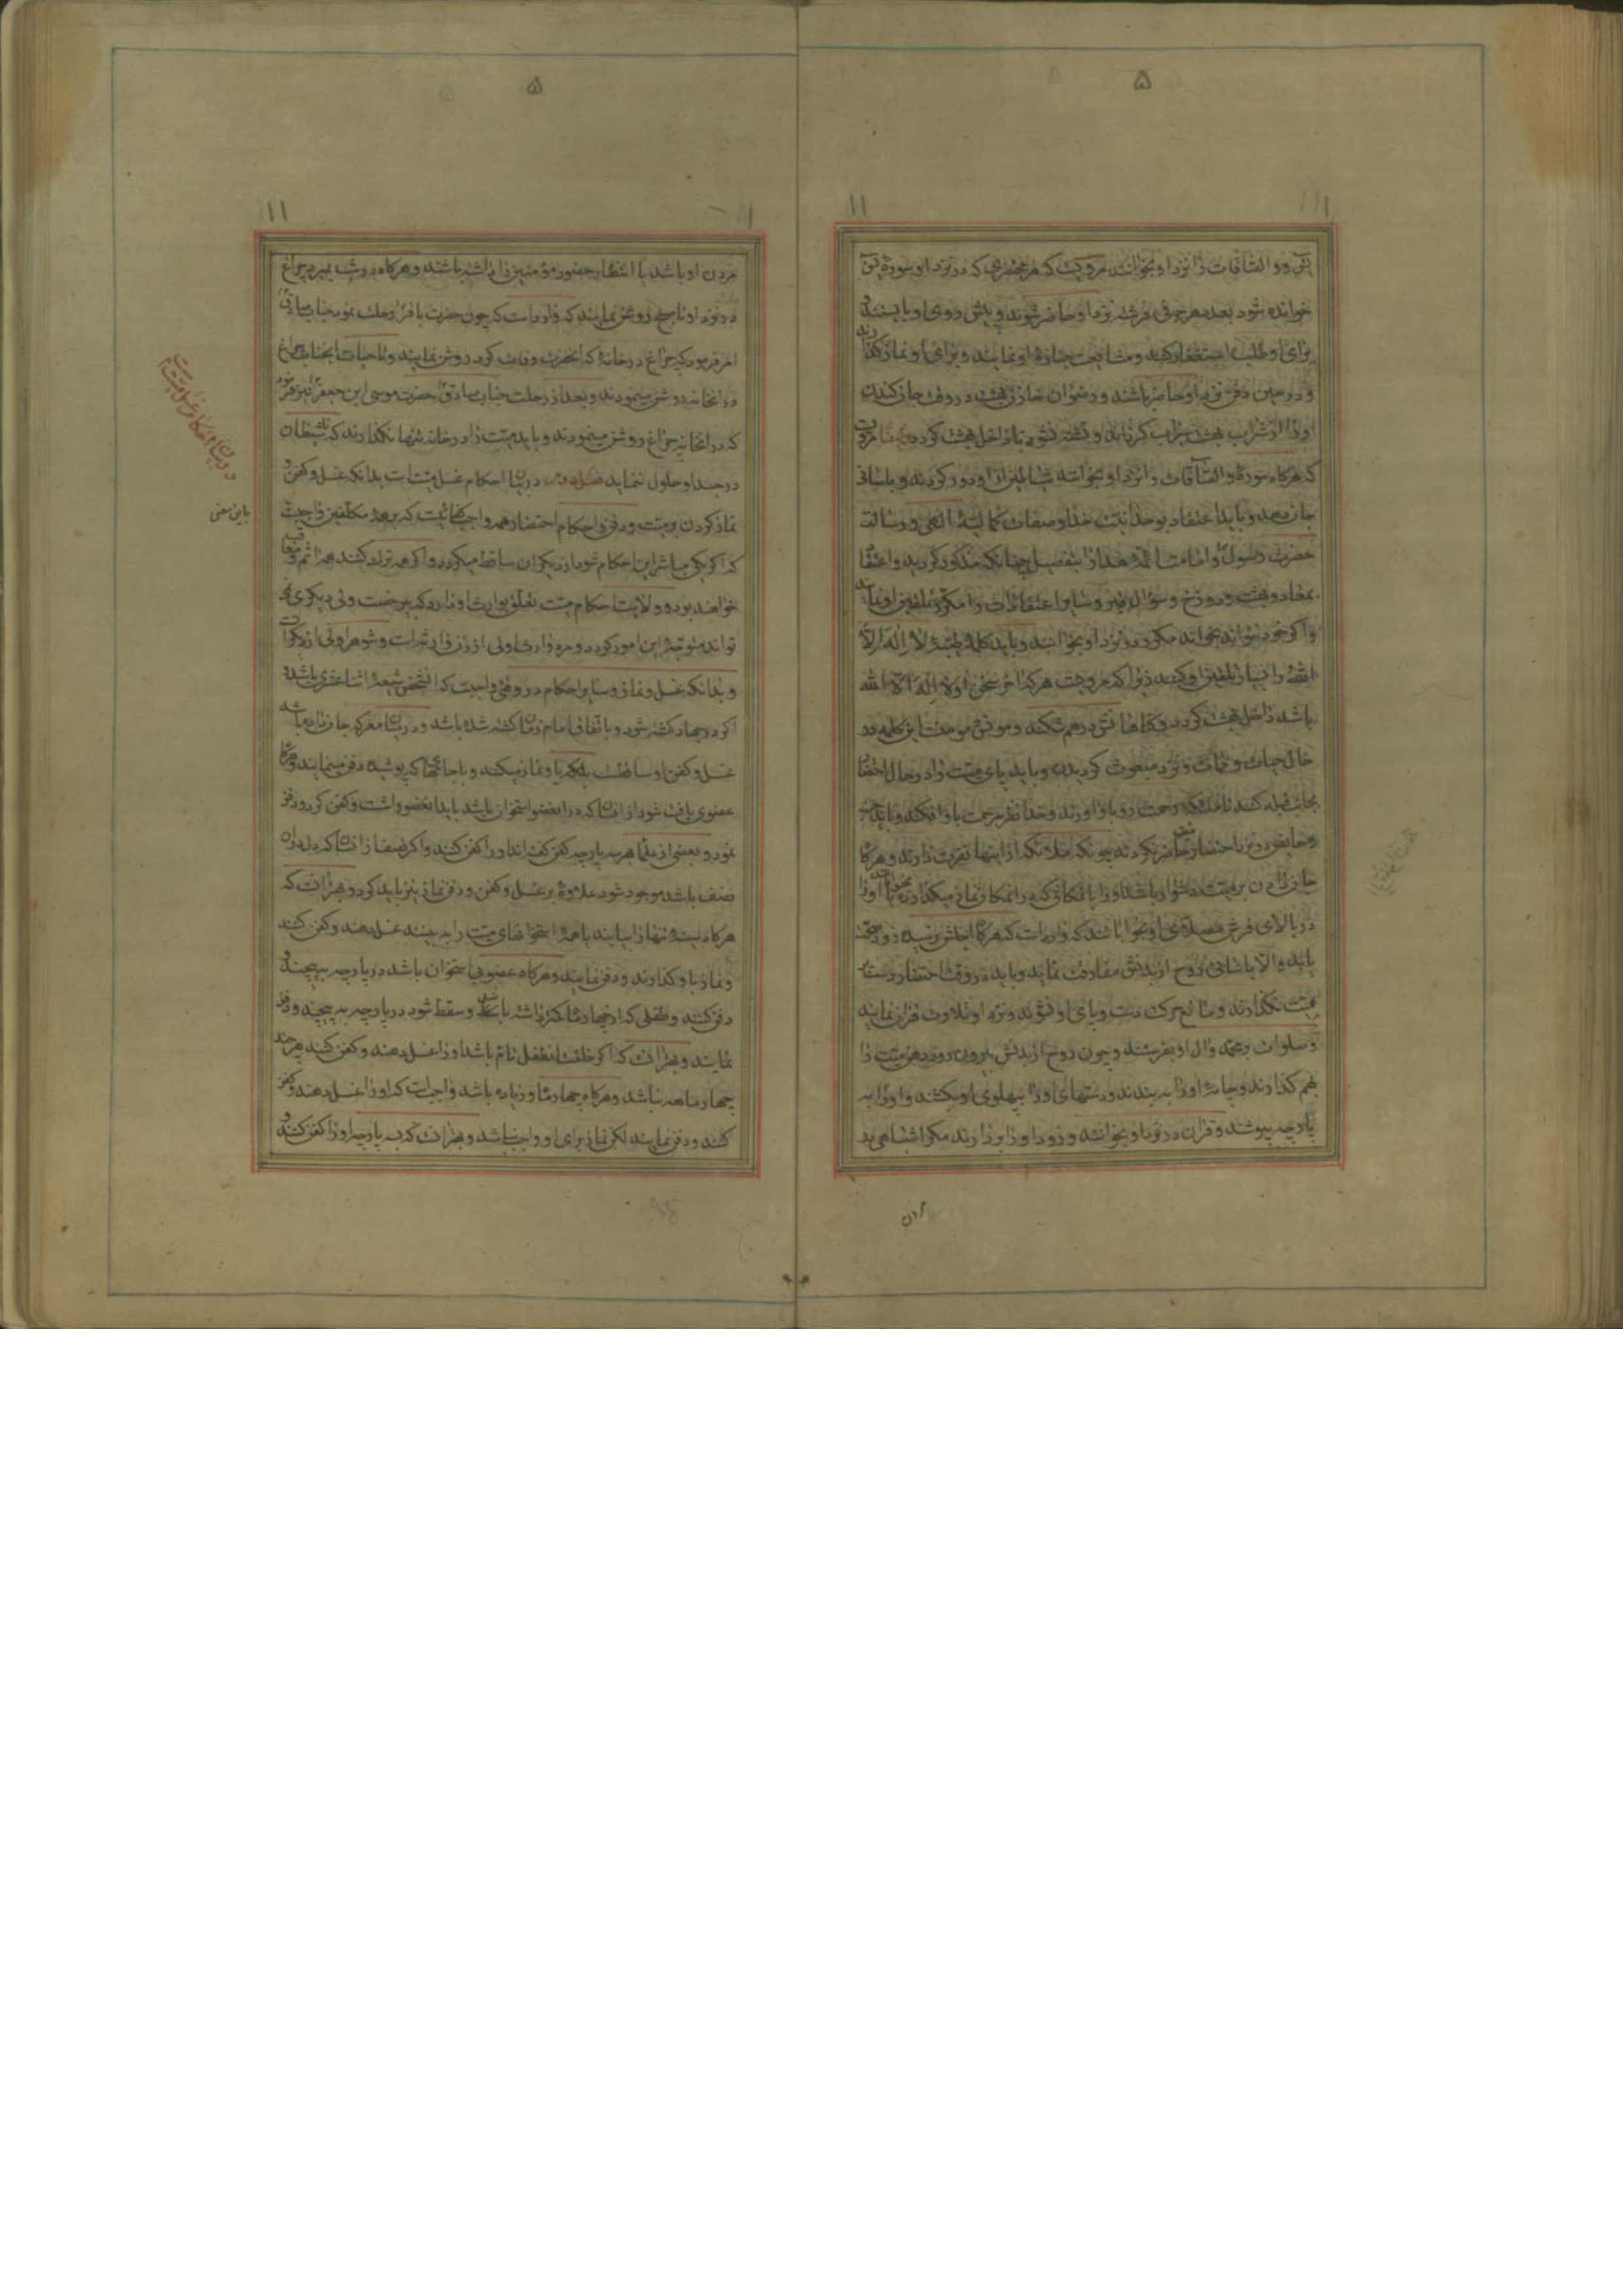 ۵
۱۱
یس و والصّافّات را نزد او بخوانند مرویست که هر محتضری که در نزد او سورهٔ یس
خوانده شود بعدد هر حرفی فرشته نزد او حاضر شوند و پیش روی او بایستند و
برای او طلب استغفار کنند و مشایعت جنازهٔ او نمایند و برای او نماز گذارند
و در حین دفن نزد او حاضر باشند و رضوان خازن بهشت در وقت جان کندن
او را از شراب بهشت سیراب گرداند و تشنه نشود تا داخل بهشت گردد و ایضا مرویست
که هرگاه سورهٔ والصّافّات را نزد او بخوانند شیاطین از او دور گردند و باسانی
جان دهد و باید اعتقاد بوحدانیت خدا و صفات کمالیهٔ الهی و رسالت
حضرت رسول و امامت ائمهٔ هدا را بتفصیل چنانکه مذکور گردید و اعتقاد
بمعاد و بهشت و دوزخ و سؤال قبر و سایر اعتقادات را مکرّر تلقین او نمایند
و اگر خود نتواند بخواند مکرر در نزد او بخوانند و باید کلمهٔ طیّبهٔ لا اِلهَ اِلّا
اللهُ را بسیار تلقین او کنند زیرا که مرویست هر که آخر سخن او لا اِلهَ اِلّا الله
باشد داخل بهشت گردد و گناهانش درهم شکند و
حال حیات و ممات و نزد مبعوث گردیدن و باید پای میّت را در حال احتضار
بجانب قبله کنند تا ملائکه رحمت رو باو آورند و خدا نظر مرحمت باو افکند و باید جنب
و حایض در نزد احتضار حاضر نگردند چونکه ملائکه از اینها نفرت دارند و هرگاه
جان دادن بر میّت دشوار باشد او را بامکانی که در آنمکان نماز میکذارده بخوابانند او را
در بالای فرش مصلّای او بخوابانند که وارد است که هرگاه اجلش رسیده زود صحت
یابد و الّا باسانی روح از بدنش مفارقت نماید و باید در وقت احتضار دست بر
میّت نگذارند و مانع حرکت دست و پای او نشوند و نزد او تلاوت قرآن نمایند
و صلوات بر محمد و آل او بفرستند و چون روح از بدنش بیرون رود دهن میّت را
بهم گذارند و چانهٔ او را به بندند و دستهای او را بپهلوی او بکشند و او را به
پارچه بپوشند و قرآن در نزد او بخوانند و زود او را بردارند مگر اشتباهی در
مردن
۵
۱۱
مردن او باشد یا انتظار حضور مؤمنین را داشته باشند و هرگاه در شب بمیرد چراغ
در نزد او تا صبح روشن نمایند که وارد است که چون حضرت باقر رحلت نمود جناب صادق
امر فرمود که چراغ در خانهٔ که آنحضرت وفات کرد روشن نمایند و تا حیات آنجناب چراغ
در آنخانه روشن مینمودند و بعد از رحلت جناب صادق حضرت موسی ابن جعفر نیز فرمود
که در آنخانه چراغ روشن مینمودند و باید میّت را در خانه تنها نگذارند که شیطان
در جسد او حلول ننماید فصل دوم در بیان احکام غسل میّت است بدانکه غسل و کفن و
نماز کردن بر میّت و دفن و احکام احتضار همه واجب کفائیست که بر همهٔ مکلّفین واجبست
که اگر یکی مباشر این احکام شود از دیگران ساقط میگردد و اگر همه ترک کنند همه آثم و معاقب
خواهند بود و ولایت احکام میّت تعلّق بوارث او دارد که بیرخصت ولی دیگری نمی
تواند متوجّه این امور گردد و مرد وارث اولی از زن وارث است و شوهر اولی از دیگرانست
و بدانکه غسل و نماز و سایر احکام در وقتی واجبست که آنشخص شیعهٔ اثنا عشری باشد و
اگر در جهاد کشته شود و باتفاق امام زمان کشته شده باشد و در میان معرکه جان داده باشد
غسل و کفن او ساقطست بلکه باو نماز میکنند و با جامهٔ که پوشیده دفن مینمایند و هرگاه
عضوی یافت شود از انسان که در آنعضو استخوان باشد باید آنعضو را شست و کفن کرد و دفن
نمود و بعضی از علما بهر سه پارچه کفن گفته‌اند او را کفن کنند و اگر نصف از انسان که دل در آن
نصف باشد موجود شود علاوهٔ بر غسل و کفن و دفن نماز نیز باید کرد و بهتر آنست که
هرگاه سینهٔ تنها را بیابند یا همهٔ استخوانهای میّت را به بینند غسل دهند و کفن کنند
و نماز باو گذارند و دفن نمایند و هرگاه عضو بی استخوان باشد در پارچه به پیچند و
دفن کنند و طفلی که از چهار ماه کمتر داشته باشد و سقط شود در پارچه به پیچند و دفن
نمایند و بهتر آنست که اگر خلقت آنطفل تام باشد او را غسل دهند و کفن کنند هر چند
چهار ماهه نباشد و هرگاه چهار ماه و زیاده باشد واجبست که او را غسل دهند و کفن
کنند و دفن نمایند لکن نماز برای او واجب نباشد و بهتر آنست که به پارچه او را کفن کنند و
در بیان احکام غسل میّت است
باین معنی